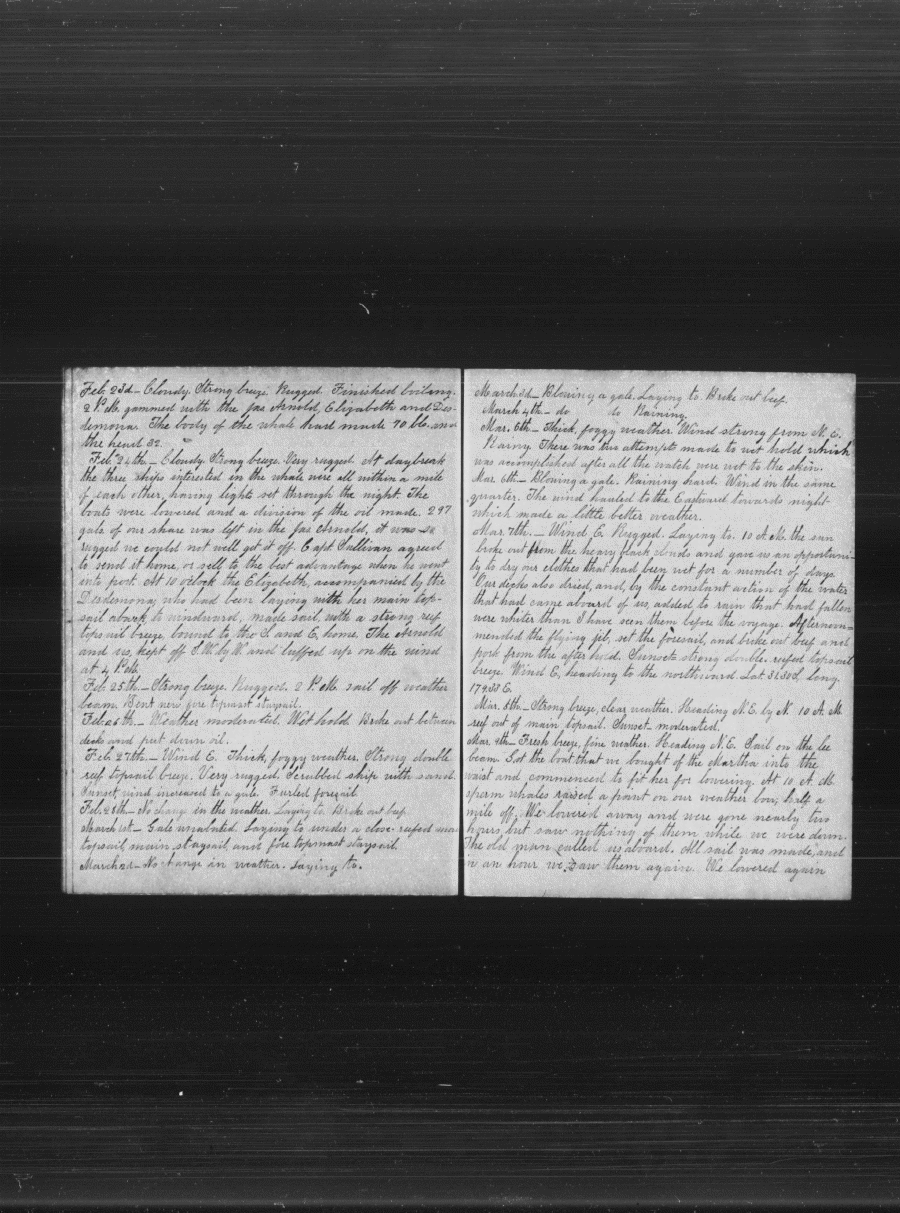 Feb. 23d – Cloudy. Strong breeze. Rugged. Finished boiling.
2 P.M. gammed with the Jas Arnold, Elizabeth and Des-
demona. The body of the whale had made 70 bls. and
the head 32.
Feb. 24th – Cloudy. Strong breeze. Very rugged. At daybreak
the three ships interested in the whale were all within a mile
of each other, having lights set through the night. The
boats were lowered and a division of the oil made. 297
gals of our share was left in the Jas Arnold, it was so
rugged we could not well get it off. Capt Sullivan agreed
to send it home, or sell to the best advantage when he went
into port. At 10 o'clock the Elizabeth, accompanied by the
Desdemona, who had been laying with her main top-
sail aback to windward, made sail with a strong reef
topsail breeze, bound to the S and E, home. The Arnold
and us, kept off S.W. by W and luffed up on the wind
at 4 P.M.
Feb. 25th. – Strong breeze. Rugged. 2 P.M. sail off weather
beam. Bent new fore topmast staysail.
Feb. 26th – Weather moderated. Wet hold. Broke out between
decks and put down oil.
Feb. 27th. – Wind E. Thick, foggy weather. Strong double
reef topsail breeze. Very rugged. Scrubbed ship with sand.
Sunset wind increased to a gale. Furled foresail.
Feb. 28th – No change in the weather. Laying to. Broke out beef.
March 1st – Gale unabated. Laying to under a close-reefed main
topsail main staysail and fore topmast staysail.
March 2d – No change in weather. Laying to.
March 3d – Blowing a gale. Laying to. Broke out beef.
March 4th – do do Raining.
Mar. 5th – Thick, foggy weather. Wind strong from N.E.
Rainy. There was two attempts made to wet hold which
was accomplished after all the watch were wet to the skin.
Mar 6th – Blowing a gale. Raining hard. Wind in the same
quarter. The wind hauled to the Eastward towards night
which made a little better weather.
Mar. 7th. – Wind E. Rugged. Laying to. 10 A.M. the sun
broke out from the heavy black clouds and gave us an opportuni-
ty to dry our clothes that had been wet for a number of days.
Our decks also dried, and, by the constant action of the water
that had came aboard of us, added to rain that had fallen
were whiter than I have seen them before the voyage. Afternoon–
mended the flying jib, set the foresail, and broke out beef and
pork from the after hold. Sunset strong double-reefed topsail
breeze. Wind E, heading to the northward. Lat 31.33 S, long.
179.38 E.
Mar. 8th – Strong breeze, clear weather. Heading N.E. by N. 10 A.M.
reef out of main topsail. Sunset – moderated.
Mar. 9th – Fresh breeze, fine weather. Heading N.E. Sail on the lee
beam. Got the boat that we bought of the Martha into the
waist and commenced to fit her for lowering. At 10 A.M.
sperm whales raised a point on our weather bow, half a
mile off. We lowered away and were gone nearly two
hours but saw nothing of them while we were down.
The old man called us aboard. All sail was made, and
in an hour we saw them again. We lowered again